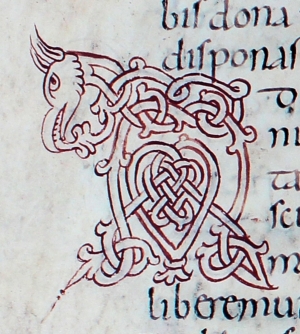 bis dona
disponas
D
ni
ta
sci
m
liberemu